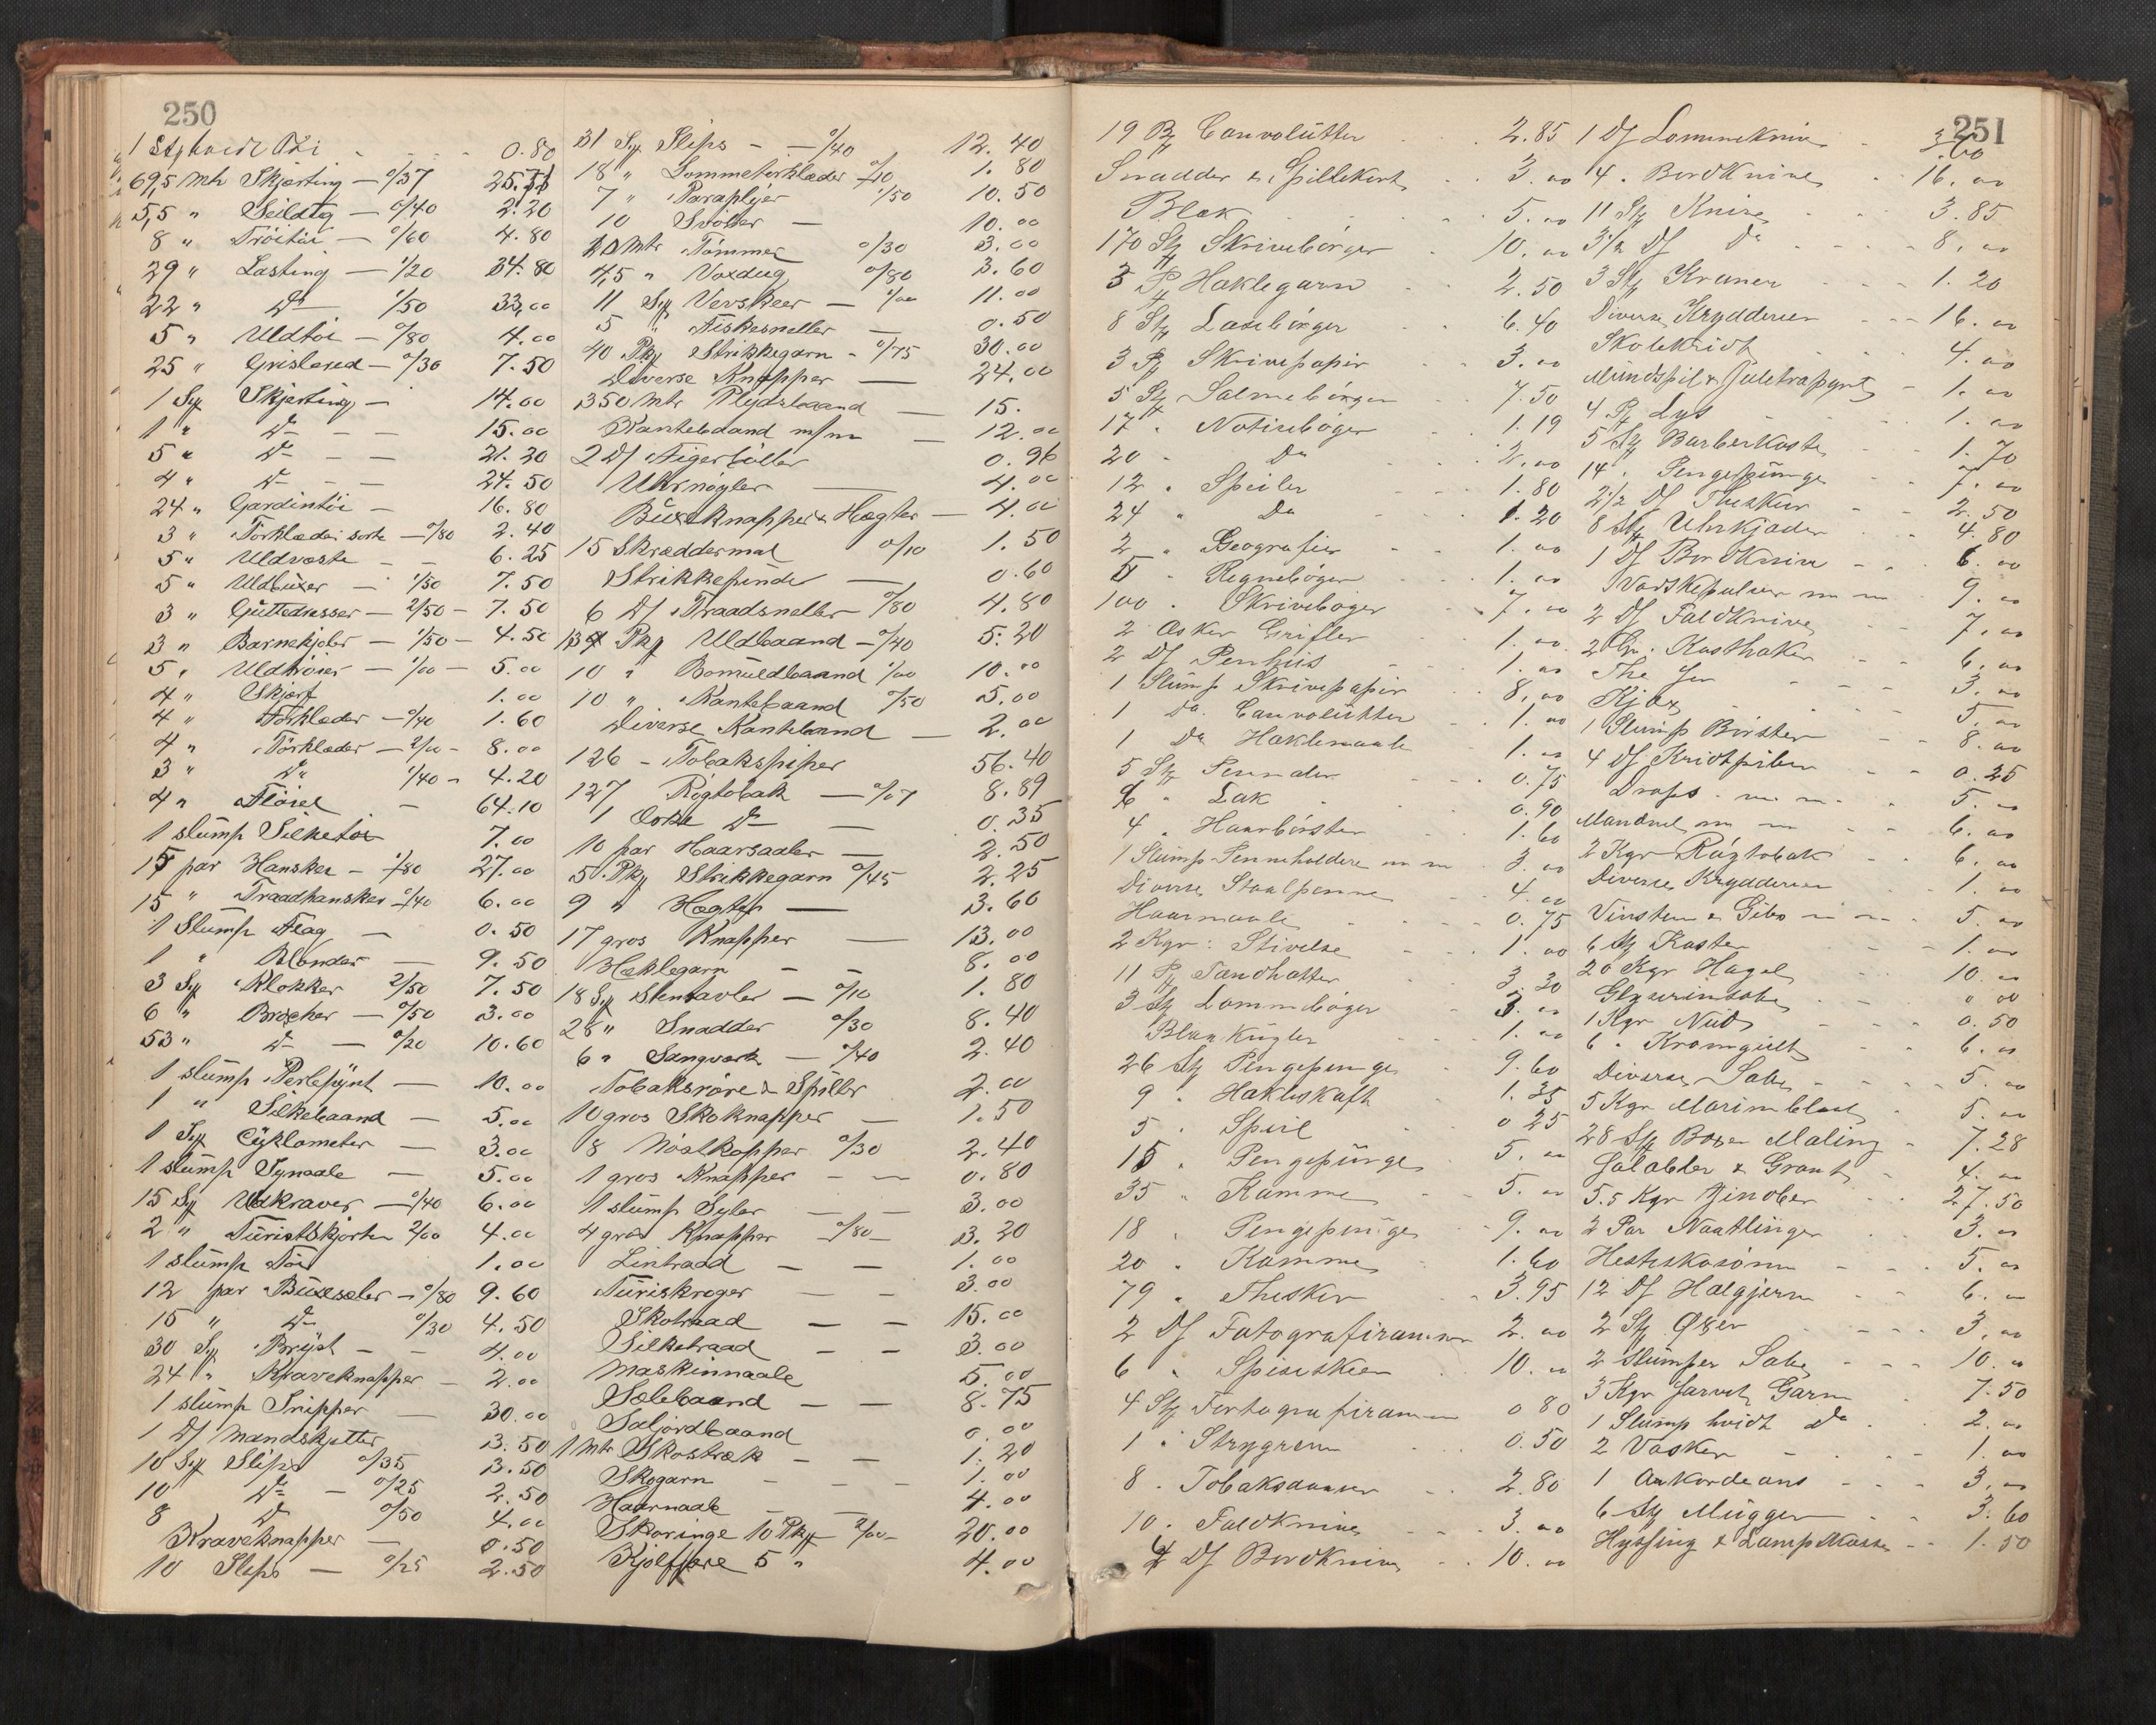 250
1 Stk hvidt Tøi - - - 0.80
69,5 Mtr Skjørting — 0/37 25.71
5,5 " Seildug — 0/40 2.20
8 " Trøitøi — 0/60 4.80
29 " Lasting — 1/20 34.80
22 " Do 1/50 33,00
5 " Uldtøi — 0/80 4.00
25 " Grislered — 0/30 7.50
1 Stk Skjørting — 14.00
1 " Do - - 15.00
5 " Do - - 21.20
4 " Do - - 24.50
24 " Gardintøi — 16.80
3 " Forklæder sorte — 0/80 2.40
5 " Uldveste — 6.25
5 " Uldbuxer — 1/50 7.50
3 " Guttedresser — 2/50 - 7.50
3 " Barnekjoler — 1/50 - 4.50
5 " Uldtrøier — 1/00 - 5.00
4 " Skjørt 1.00
4 " Forklæder — 0/40 1.60
4 " Tørklæder — 2/00 - 8.00
3 " Do 1/40 - 4.20
4 " Fløiel — 64.10
1 slump Silketøi 7.00
15 par Hansker - 1/80 27.00
15 " Traadhansker 0/40 6.00
1 Slump Flag — 0.50
1 " Blonder — 9.50
3 Stk Klokker 2/50 7.50
6 " Brocher — 0/50 3.00
53 " Do — 0/20 10.60
1 slump Perlepynt — 10.00
1 " Silkebaand — 5.00
1 Stk Cyklometer — 3.00
1 slump Synaale — 5.00
15 Stk Uldkraver — 0/40 6.00
2 " Turistskjorter 2/00 4.00
1 slump Tøi 1.00
12 par Buxeseler — 0/80 9.60
15 " Do 0/30 4.50
30 Stk Bryst - - 4.00
24 " Kraveknapper — 2.00
1 slump Snipper — 30.00
1 Df Mandskjetter 3.50
10 Stk Slips 0/35 3.50
10 Do — 0/25 2.50
8 Do 0/50 4.00
Kraveknapper — 0.50
10 Slips — 0/25 2.50
31 Stk Slips - — 0/40 12.40
18 " Lommetørklæder 0/10 1.80
7 " Paraplyer 1/50 10.50
10 Svøber — 10.00
10 Mtr Tømmer 0/30 3.00
4,5 " Voxdug 0/80 3.60
11 Stk Verskeer — 1/00 11.00
5 " Fiskesneller — 0.50
40 Pky Strikkegarn - 0/75 30.00
Diverse Knapper — 24.00
350 Mtr Plydsbaand — 15.
Kantebaand m/m — 12.00
2 Df Figerbøller 0.96
Uhrnøgler — 4.00
Buxeknapper & Hægter — 4.00
15 Skræddermal 0/10 1.50
Strikkepinde — 0.60
6 Df Traadsneller 0/80 4.80
13 Pky Uldbaand — 0/40 5.20
10 " Bomuldbaand 1/00 10.00
10 " Kantebaand 0/50 5.00
Diverse Kantebaand — 2.00
126 - Tobakspiper 56.40
127 Røgtobak — 0/07 8.89
1 Æske Do — 0.35
10 par Haarsaaler — 2.50
5 Pky Strikkegarn 0/45 2.25
9 " Hægter — 3.60
17 gros Knapper — 13.00
Hæklegarn - - 8.00
18 Stk Stentavler — 0/10 1.80
28 " Snadder 0/30 8.40
6 " Sangværk — 0/40 2.40
Tobaksrøre & Spiller 2.00
10 gros Skoknapper — 1.50
8 Nøstkopper 0/30 2.40
1 gros Knapper - — 0.80
1 slump Syler - - 3.00
4 gros Knapper 0/80 - 3.20
Lintraad - - 1.00
Turiskroger - - 3.00
Skotraad - - 15.00
Silketraad - - 3.00
Maskinnaale 5.00
Sælebaand - - 8.75
Saljordbaand 0.00
1 Mtr Skostræk - - 1.20
Skogarn - - 1.00
Haarnaale - - 4.00
Skoringe 10 Pky 2/00 - 20.00
Kjolefjære 5 " 4.00
251
19 Pk Convolutter 2.85
Snadder & Spillekort 3.00
Blæk 5.00
170 Stk Skrivebøger 10.00
3 Pk Hæklegarn 2.50
8 Stk Læsebøger 6.40
3 Pk Skrivepapir 3.00
5 Stk Salmebøger 7.50
17 " Notisebøger 1.19
20 " Do 2.00
12 " Speiler 1.80
24 " Do 1.20
2 " Geografier 1.00
5 " Regnebøger 1.00
100 " Skrivebøger 7.00
2 Æsker Grifler 1.00
2 Df Penhus 1.00
1 Slump Skrivepapir 8.00
1 Do Convolutter 1.00
1 Do Heklenaale 1.00
5 Stk Pennaler 0.75
6 " Lak 0.90
4 " Haarbørster 1.60
1 Slump Penneholdere m m 3.00
Diverse Staalpenner 4.00
Haarnaale 0.75
2 Kgr: Stivelse 1.00
11 Pk Tændhatter 3.30
3 Stk Lommebøger 3.00
Blaa Kugler 1.00
26 Stk Pengepunge 9.60
9 " Hækleskaft 1.35
5 " Speil 0.25
15 " Pengepunge 5.00
35 " Kamme 5.00
18 " Pengepunge 9.00
20 " Kamme 1.60
79 " Theskeer 3.95
2 Df Fotografirammer 2.00
6 " Spiseskeer 10.00
4 Stk Fortografirammer 0 80
1 " Strygerem 0.50
8 " Tobaksdaaser 2.80
10 " Foldknive 3.00
4 Df Bordknive 10.00
1 Df Lommeknive 3.60
4 " Bordknive 16.00
11 Stk Knive 3.85
3 1/2 Df Do 8.00
3 Stk Kraner 1.20
Diverse Krydderier 16.00
Skolekridt 4.00
Mundspil & Juletræpynt 1.00
4 Pk Lys 1.00
5 Stk Barberkoste 1.70
14 " Pengepunge 7.00
2 1/2 Df Theskeer 2.50
8 Stk Uhrkjæder 4.80
1 Df Bordknive 6.00
Vaskepulver m m 9.00
2 Df Foldknive 7.00
2 Gr. Kasthaker 6.00
The 3.00
Kjæx 5.00
1 Slump Børster 8.00
4 Df Kridtpiber 0.25
Drops m m 5.00
Mandler m m 6.00
2 Kgr Røgtobak 6.00
Diverse Krydderier 1.00
Vinsten & Gibs m m 5.00
6 Stk Koster 1.00
20 Kgr Hagel 10.00
Glyserinsæbe 0 00
1 Kgr Nud 0.50
6 " Kromgult 6.00
Diverse Sæbe 5.00
5 Kgr Marineblaat 5.00
28 Stk Boxer Maling 7.28
4.00
5.5 Kgr Zinober 27.50
2 Par Naatlinger 3.00
Hesteskosøm 5.00
12 Df Hælgjern 6.00
2 Stk Øxer 3.00
2 Slumper Sæbe 10.00
3 Kgr farvet Garn 7.50
1 Slump hvidt Do 2.00
2 Vasker 1.00
1 Ankordeons 3.00
6 Stk Mugger 3.60
Hyssing & Lampe 1.50